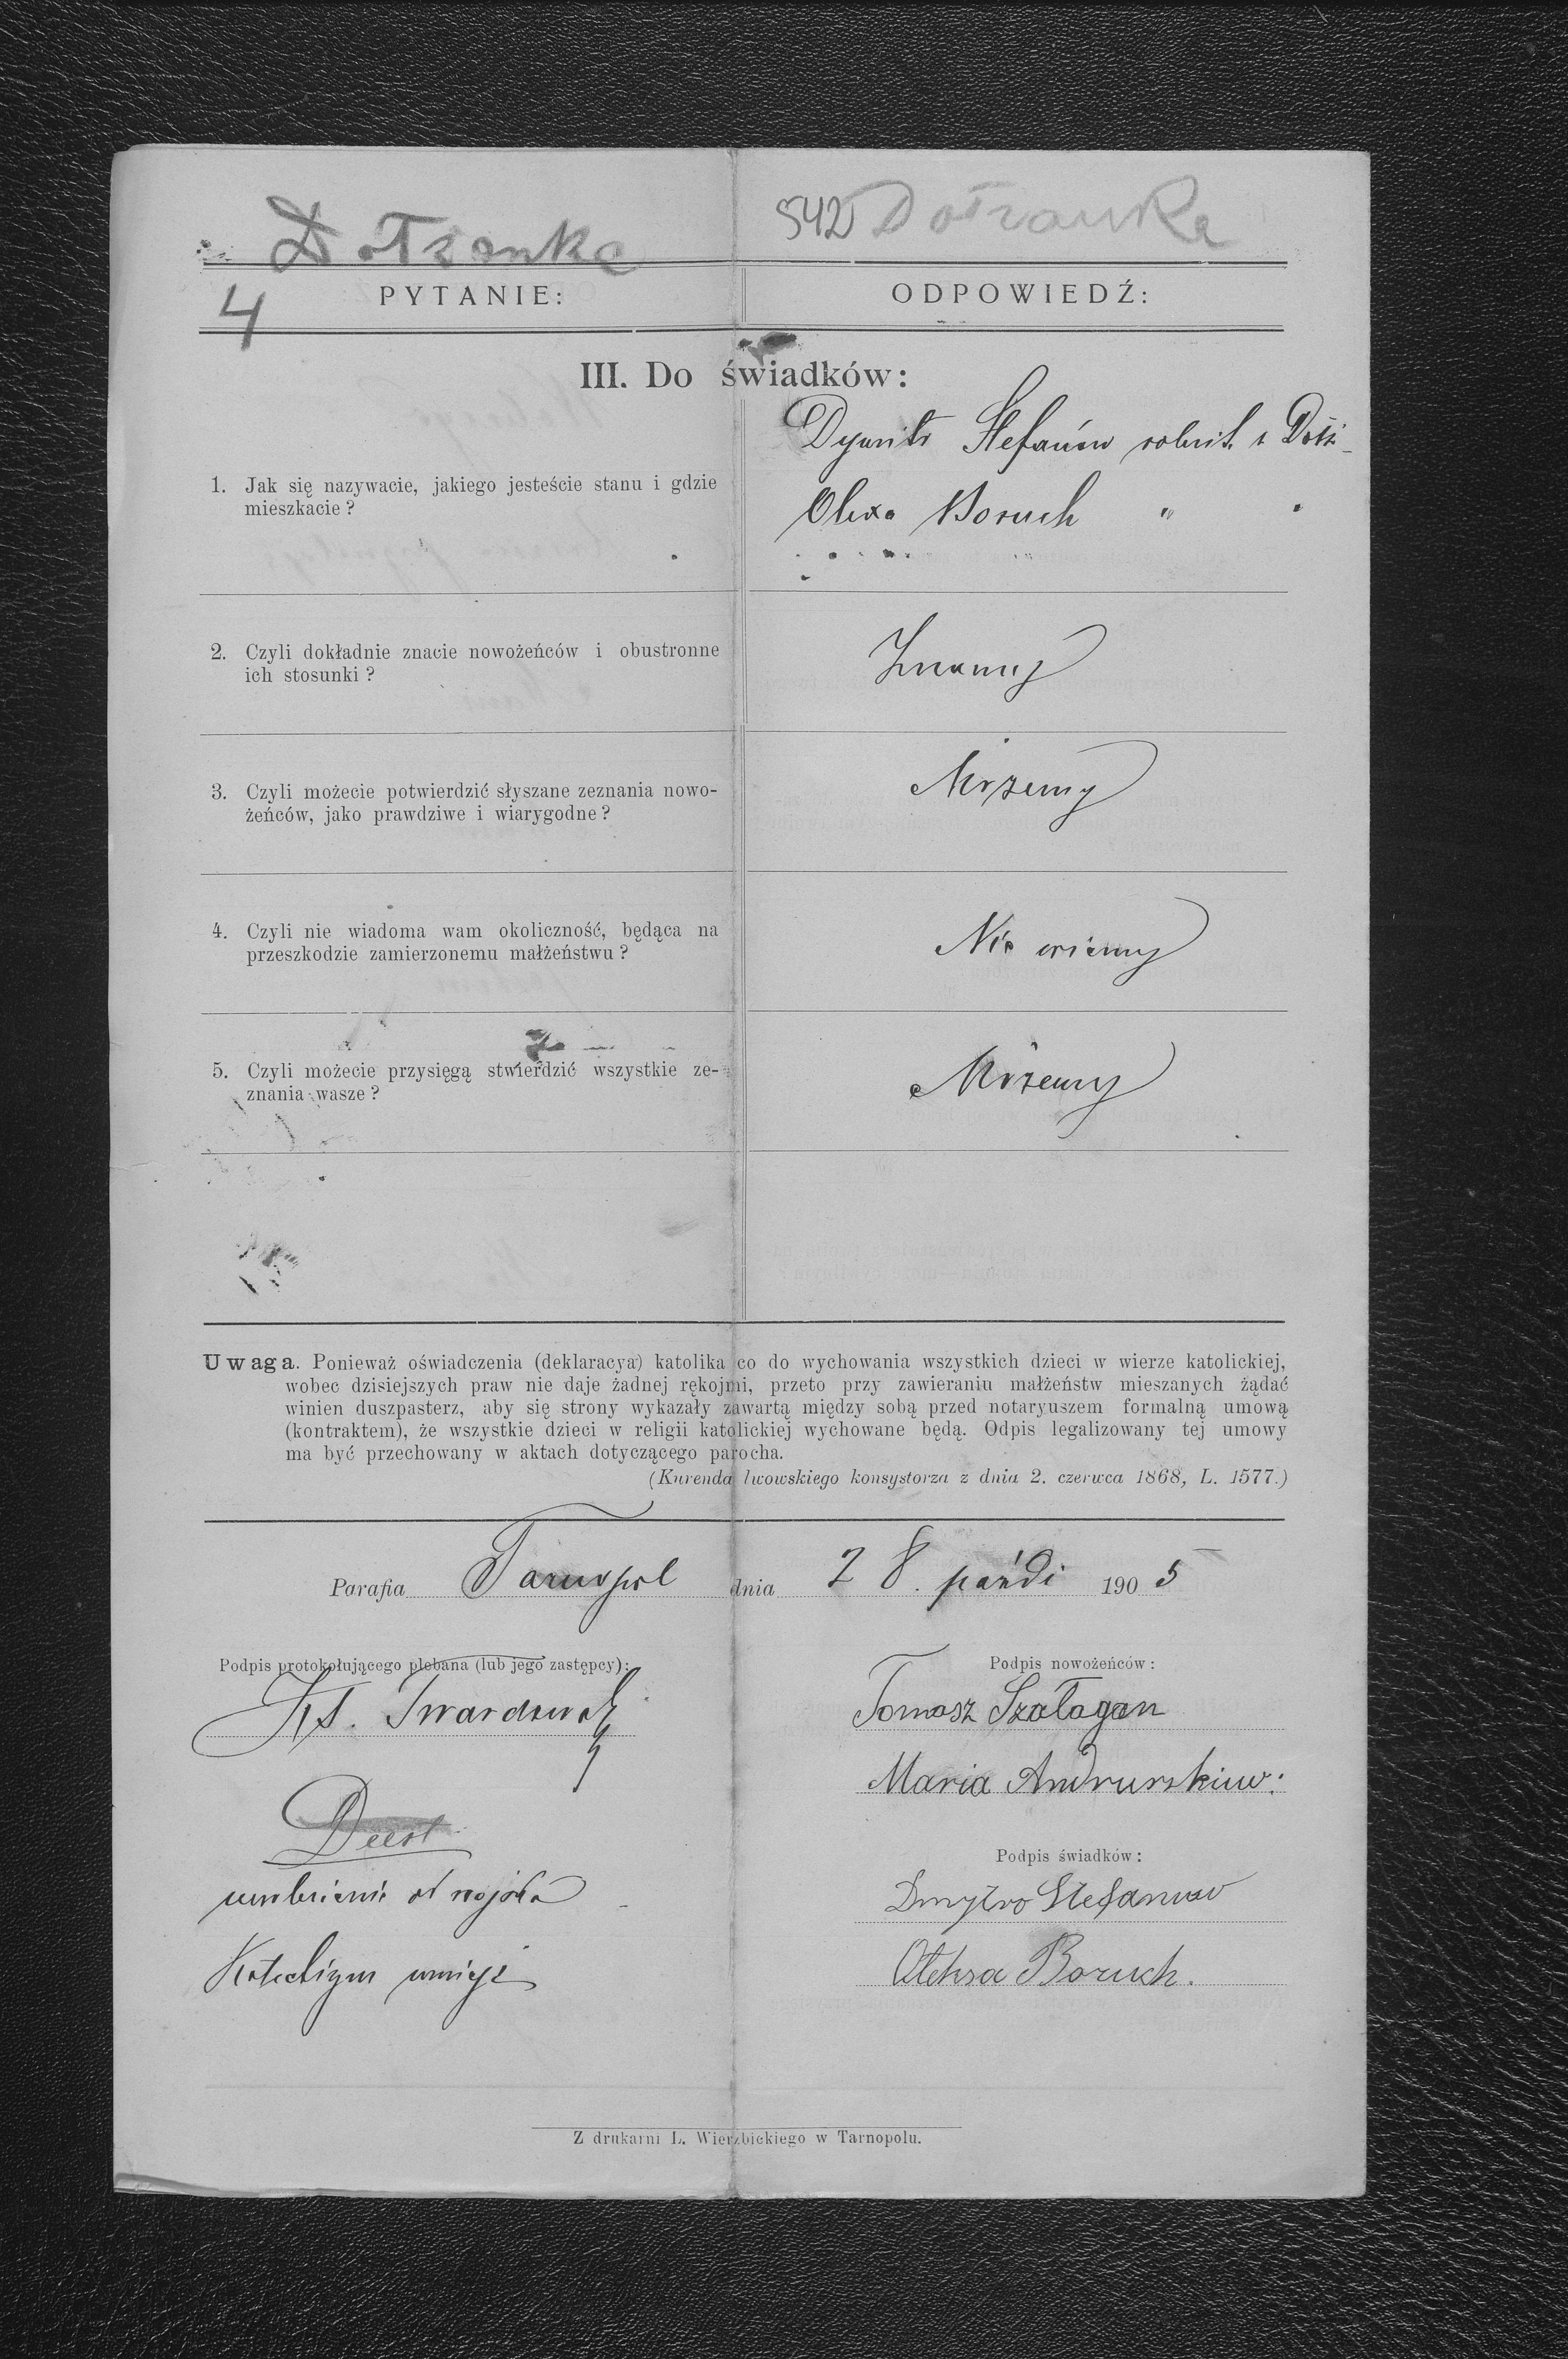 Dołżanka
542 Dołżanka
4
PYTANIE:
ODPOWIEDŹ:
III. Do świadków:
1. Jak się nazywacie, jakiego jesteście stanu i gdzie
mieszkacie?
Dymitr Stefanów rolnik z Dołż
Olexa Boruch " "
2. Czyli dokładnie znacie nowożeńców i obustronne
ich stosunki?
Znamy
3. Czyli możecie potwierdzić słyszane zeznania nowo-
żeńców, jako prawdziwe i wiarygodne?
Możemy
4. Czyli nie wiadoma wam okoliczność, będąca na
przeszkodzie zamierzonemu małżeństwu?
Nie wiemy
5. Czyli możecie przysięgą stwierdzić wszystkie ze-
znania wasze?
Możemy
Uwaga. Ponieważ oświadczenia (deklaracya) katolika co do wychowania wszystkich dzieci w wierze katolickiej,
wobec dzisiejszych praw nie daje żadnej rękojmi, przeto przy zawieraniu małżeństw mieszanych żądać
winien duszpasterz, aby się strony wykazały zawartą między sobą przed notaryuszem formalną umową
(kontraktem), że wszystkie dzieci w religii katolickiej wychowane będą. Odpis legalizowany tej umowy
ma być przechowany w aktach dotyczącego parocha.
(Kurenda lwowskiego konsystorza z dnia 2. czerwca 1868, L. 1577.)
Parafia Tarnopol dnia 28. paźdź 1905
Podpis protokołującego plebana (lub jego zastępcy):
Ks. Twardowski
Podpis nowożeńców:
Tomasz Szałagan
Maria Andrurskiuw:
Deest
uwolnienie od wojska
Katechizm umieją
Podpis świadków:
Dmytro Stefaniuw
Oleksa Boruch.
Z drukarni L. Wierzbickiego w Tarnopolu.